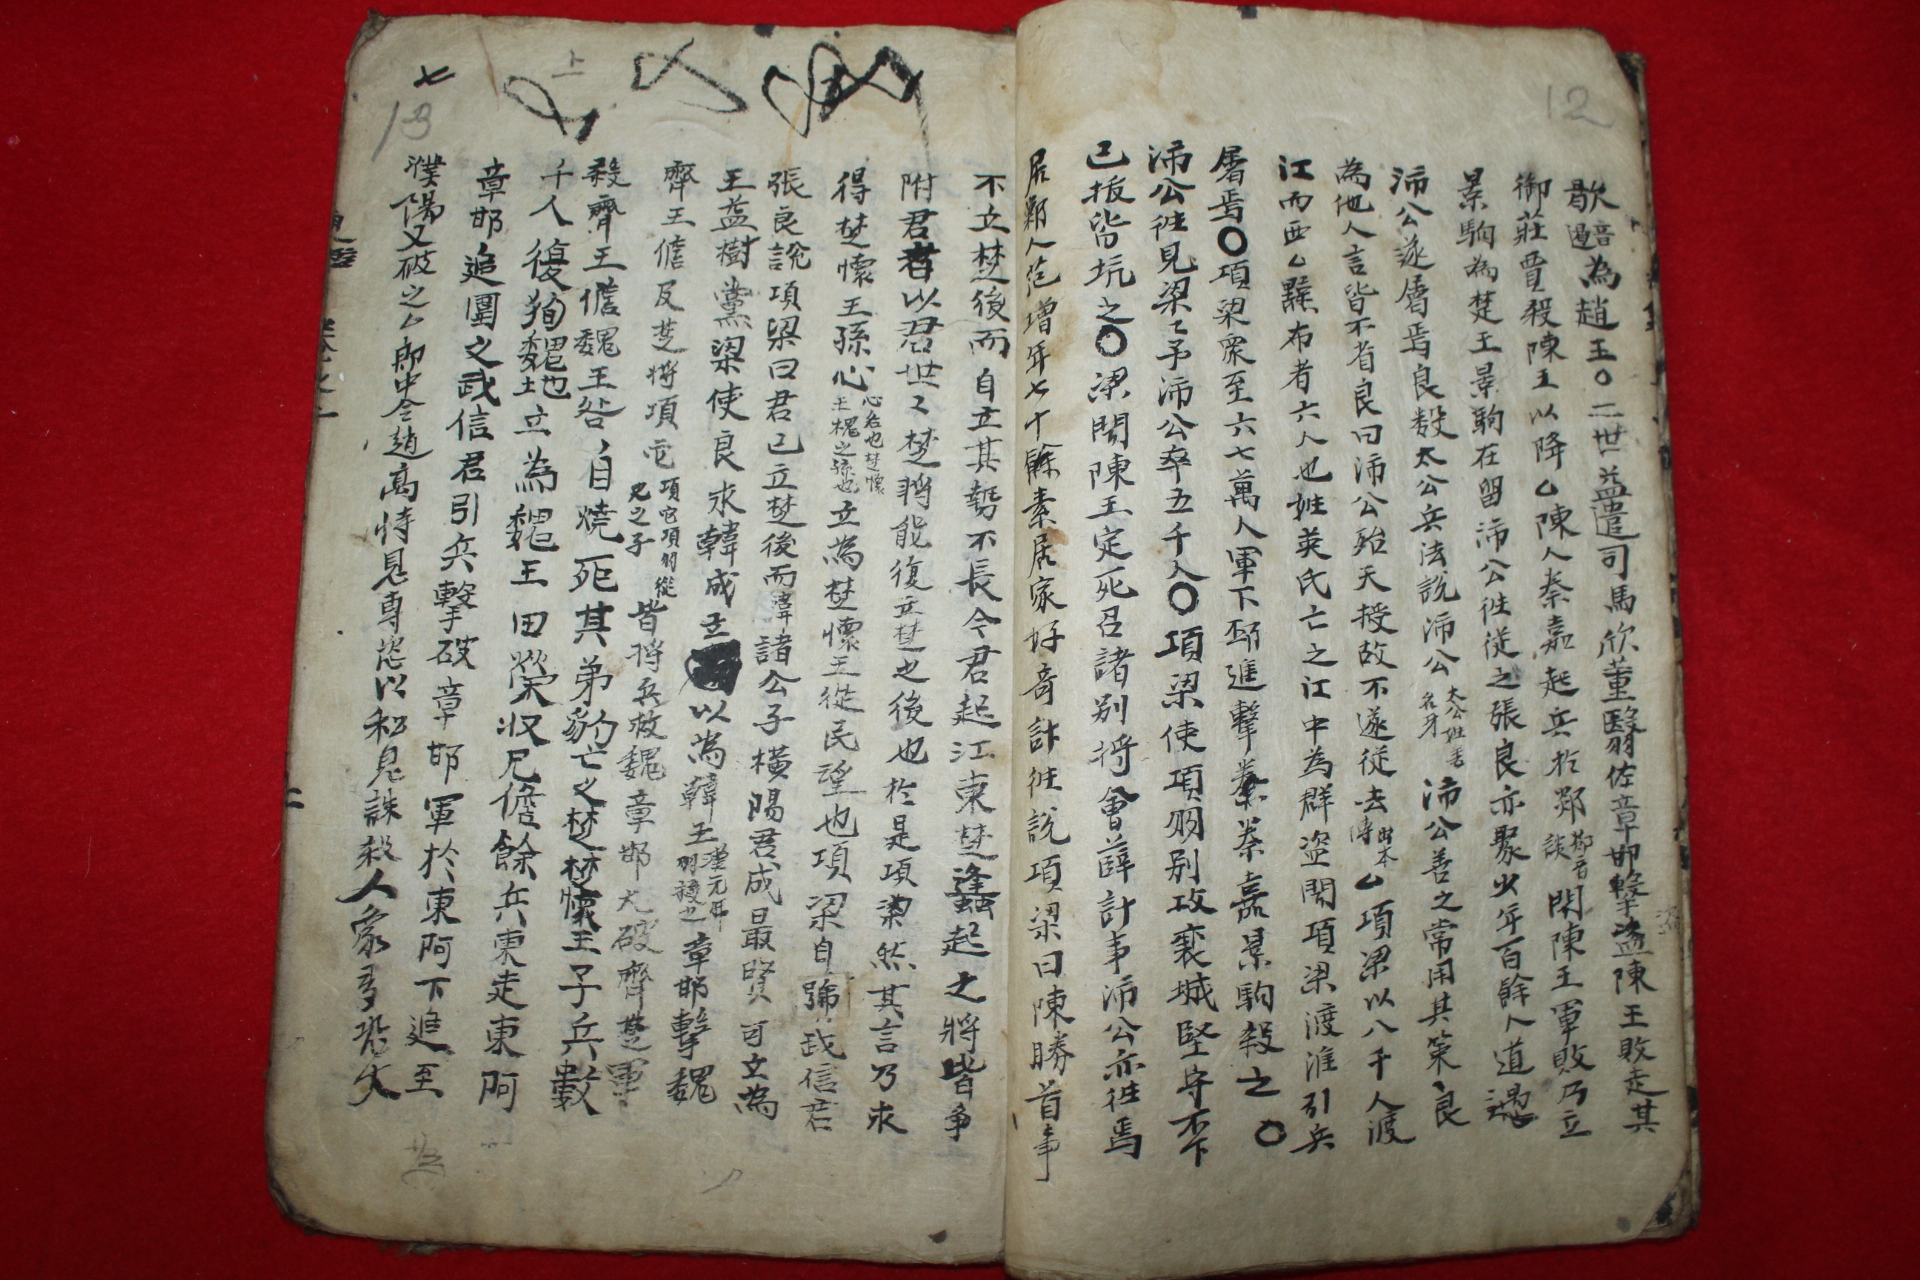 12
歇謁音為趙王〇二世益遣司馬欣董翳佐章邯擊盜陳王敗走其
御莊賈殺陳王以降厶陳人秦嘉起兵於郯郯音談聞陳王軍敗乃立
景駒為楚王景駒在留沛公往從之張良亦聚少年百餘人道遇
沛公遂屬焉良數太公兵法說沛公太公姓呂名牙沛公善之常用其策丶良
為他人言皆不省良曰沛公殆天授故不遂從去出本傳厶項梁以八千人渡
江而西厶黥布者六人也姓英氏亡之江中為群盜聞項梁渡淮引兵
屬焉〇項梁眾至六七萬人軍下邳進擊秦嘉景駒殺之〇
沛公往見梁〻予沛公卒五千人〇項梁使項羽別攻襄城堅守不下
已拔皆坑之〇梁聞陳王定死召諸別將會薛計事沛公亦往焉
居鄛人范增年七十餘素居家好奇計往說項梁曰陳勝首事
不立楚後而自立其勢不長今君起江東楚蜂起之將皆爭
附君者以君世〻楚將能復立楚之後也於是項梁然其言乃求
得楚懷王孫心心名也楚懷王槐之孫也立為楚懷王從民望也項梁自號武信君
張良說項梁曰君已立楚後而韓諸公子橫陽君成最賢可立為
王益樹黨梁使良求韓成立以為韓王漢元年羽殺之章邯擊魏
齊王儋及楚將項它項它項羽從兄之子皆將兵救魏章邯大破齊楚軍
殺齊王儋魏王咎丶自燒死其弟豹亡之楚楚懷王予兵數
千人復徇魏地立為魏王田榮收兄儋餘兵東走東阿
章邯追圍之武信君引兵擊破章邯軍於東阿下追至
濮陽又破之厶郎中令趙高恃恩專恣以私怨誅殺人衆多恐大
七
13
上